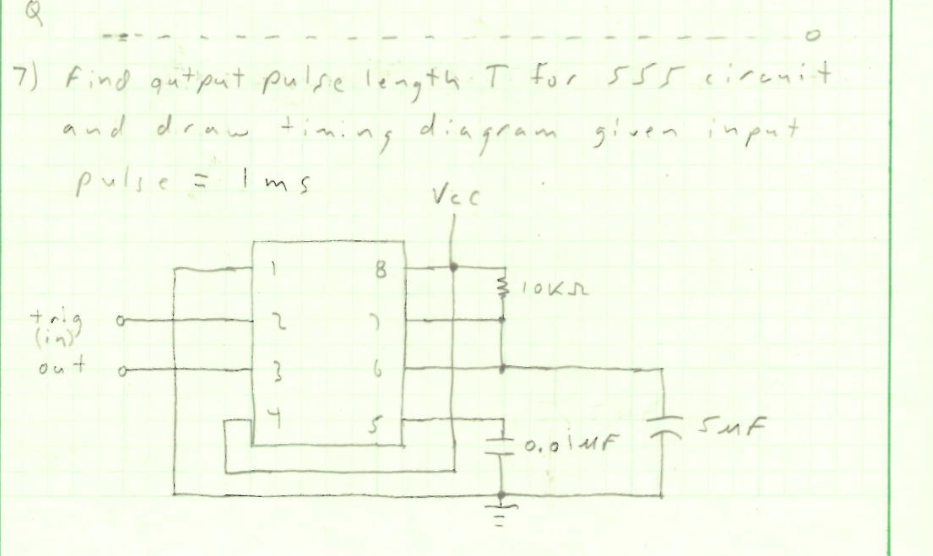 Q
7) Find output pulse length T for 555 circuit
and draw timing diagram given input
pulse = 1ms
Vcc
1 8
10KΩ
trig
(in)
2 7
out
3 6
4 5
0.01μF
5μF